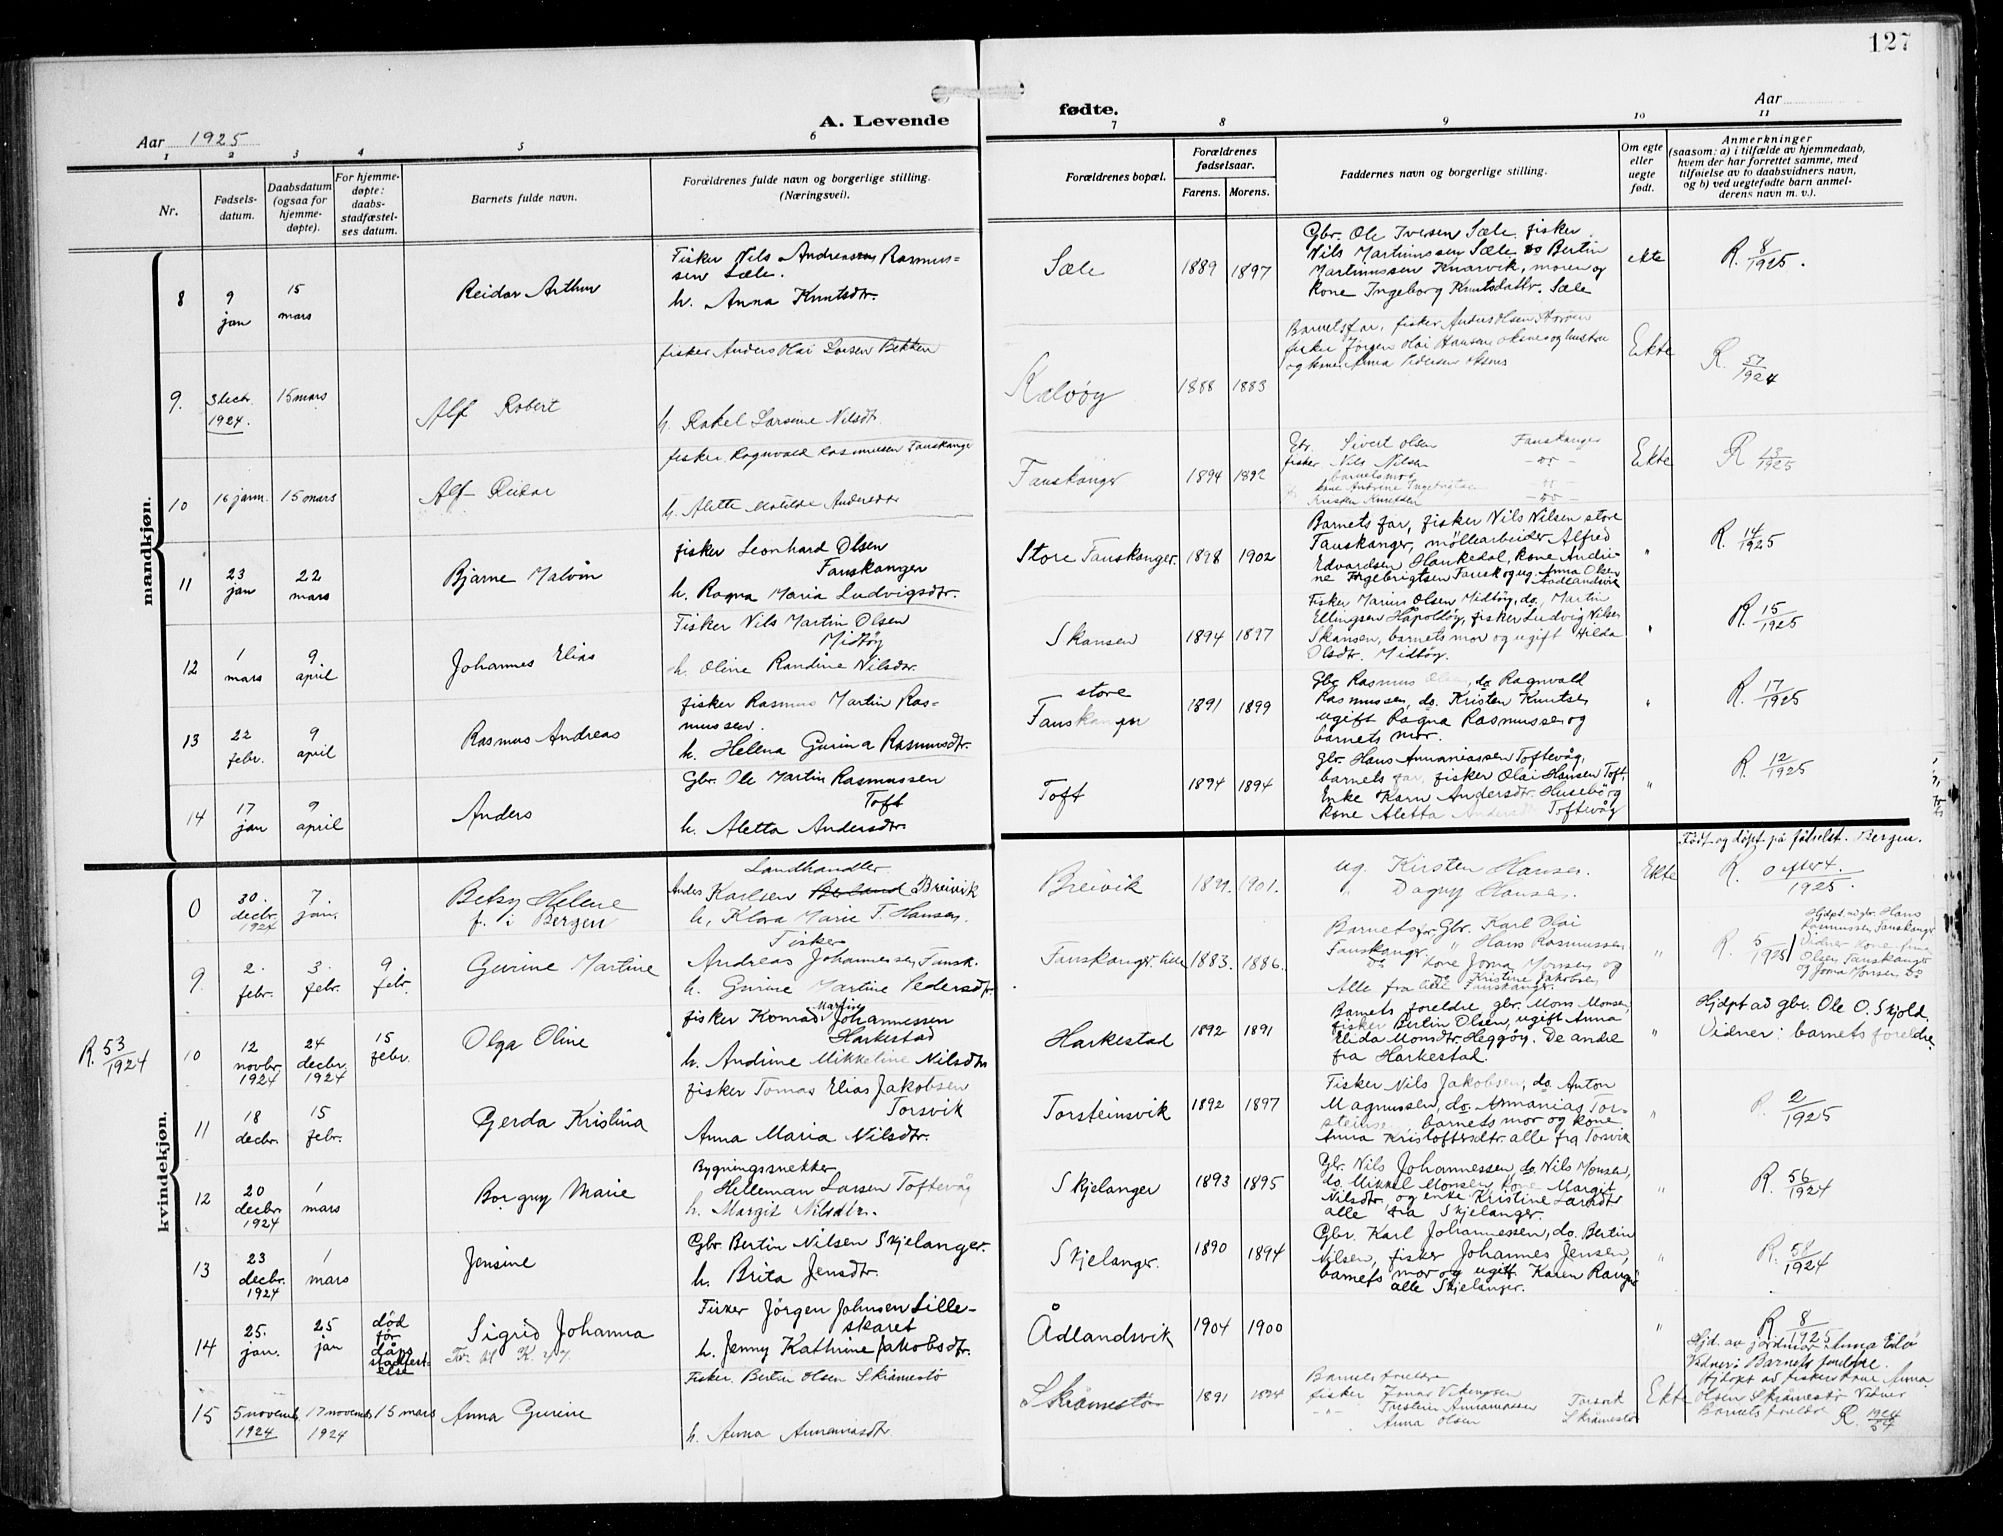 127
A. Levende fødte.
Aar 1925
Aar
1 2 3 4 5 6 7 8 9 10 11
Nr.
Fødsels-
datum.
Daabsdatum
(ogsaa for
hjemme-
døpte).
For hjemme-
døpte:
daabs-
stadfæstel-
ses datum.
Barnets fulde navn.
Forældrenes fulde navn og borgerlige stilling.
(Næringsvei).
Forældrenes bopæl.
Forældrenes
fødselsaar.
Farens. Morens.
Faddernes navn og borgerlige stilling.
Om egte
eller
uegte
født.
Anmerkninger
(saasom: a) i tilfælde av hjemmedaab,
hvem der har forrettet samme, med
tilføielse av to daabsvidners navn,
og b) ved uegtefødte barn anmel-
derens navn m. v.).
mandkjøn.
8
9
jan
15
mars
Reidar Arthur
Fisker Nils Andreas Rasmus=
sen Sæle.
h. Anna Knutsdtr.
Sæle
1889 1897
Gbr. Ole Iversen Sæle, fisker
Nils Martinussen Sæle, do Bertin
Martinussen Knarvik, moren og
kone Ingeborg Knutsdattr. Sæle
ekte
R. 8/1925.
9.
3 decbr.
1924.
15 mars
Alf Robert
fisker Anders Olai Larsen Bekken
h. Rakel Larsine Nilsdtr.
Kelvøy
1888 1883
Barnets far, fisker Anders Olsen
fisker Jørgen Olai Hansen Oksnes og hustru
og kone Anna Pedersen Oksnes
Ekte
R. 57/1924
10
16 janr.
15 mars
Alf Reidar
fisker Ragnvald Rasmussen Fanskanger
h. Alette Matilde Andersdtr
Fanskanger
1894 1892
Gbr. Sivert Olsen Fanskanger
fisker Nils Nilsen
barnets mor
kone Andrine Ingebrigtsen
Kristen Knutsen
Ekte
R 13/1925
11
23
jan
22
mars
Bjarne Malvin
fisker Leonhard Olsen
Fanskanger
h. Ragna Maria Ludvigsdtr.
Store Fanskanger.
1898 1902
Barnets far, fisker Nils Nilsen store
Fanskanger, møllearbeider Alfred
Edvardsen Haukedal, kone Andri-
ne Ingebrigtsen Fansk. og ug. Anna Olsen
Aadlandsvik
"
R. 14/1925
12
1
mars
9
april
Johannes Elias
Fisker Nils Martin Olsen
Midtøy
h. Oline Randine Nilsdtr.
Skansen
1894 1897
Fisker Marius Olsen Midtøy, do. Martin
Ellingsen Håpoldøy, fisker Ludvig Nilsen
Skansen, barnets mor og ugift Hilda
Olsdtr. Midtøy.
R. 15/1925
13
22
febr.
9
april
Rasmus Andreas
fisker Rasmus Martin Ras=
mussen.
h. Helena Gurina Rasmusdtr.
store
Fanskanger
1891 1899
Gbr Rasmus Olsen, do Ragnvald
Rasmussen, do. Kristen Knutsen
ugift Ragna Rasmussen og
barnets mor.
R. 17/1925
14
17
jan
9
april
Anders
Gbr. Ole Martin Rasmussen
Toft
h. Aletta Andersdtr.
Toft
1894 1894
Gbr. Hans Annaniassen Toftevåg,
barnets far, fisker Olai Hansen Toft
Enke Karn Andersdtr. Husebø og
kone Aletta Andersdtr Toftevåg
"
R. 12/1925
kvindekjøn.
0
30.
decbr.
1924
7.
jan.
Betsy Helene
f. i Bergen
Landhandler
Anders Karlsen Breivik
h. Klara Marie T. Hansen.
Breivik
1901.
ug. Kirsten Hansen.
" Dagny Hansen.
Ekte
Født og døpt på fødselst. Bergen.
R. 0 efter 4/1925.
9.
2.
febr.
3.
febr.
9.
febr.
Gurine Martine
Fisker
Andreas Johannessen Fansk.
h. Gurine Martine Pedersdtr.
Fanskanger. lille
1883. 1886.
Barnets far Gbr. Karl Olai
Fanskanger. " Hans Rasmussen
Do kone Joma Monsen og
do Kristine Jakobsen
Alle fra lille Fanskanger.
"
R. 5/1925
Hjdpt. ad gbr. Hans
Rasmussen Fanskanger
Vidner kone Anna
Olsen Fanskanger
og Joma Monsen do
R. 53/1924
10
12
novbr.
1924
24
decbr.
1924
15
febr.
Olga Oline
fisker Konrad Martin Johannessen
Harkestad
h. Andrine Mikkeline Nilsdtr
Harkestad
1892 1891
Barnets foreldre gbr. Mons Monsen,
fisker Bertin Olsen, ugift Anna
Elida Monsdtr. Heggøy. De andre
fra Harkestad.
"
Hjdpt ad gbr. Ole O. Skjold.
Vidner: barnets foreldre.
11
18
decbr.
15
febr.
Gerda Kristina
fisker Tomas Elias Jakobsen
Torsvik
Anna Maria Nilsdtr.
Torsteinsvik
1892 1897
Fisker Nils Jakobsen, do. Anton
Magnussen, do. Annanias Tor-
steinsen, barnets mor og kone
Anna Kristoffersdtr. alle fra Torsvik
"
R. 2/1925
12
20
decbr.
1924
1
mars
Borgny Marie
Bygningssnekker
Helleman Larsen Toftevåg
h. Margit Nilsdtr.
Skjelanger
1893 1895
Gbr. Nils Johannessen, do. Nils Monsen,
do. Mikkel Monsen kone Margit
Nilsdtr. og enke Kristine Larsdtr
alle fra Skjelanger.
"
R. 56/1924
13
23
decbr.
1924
1
mars
Jensine
Gbr. Bertin Nilsen Skjelanger.
h. Brita Jensdtr.
Skjelanger.
1890 1894
Gbr. Karl Johannessen, do. Bertin
Nilsen, fisker Johannes Jensen,
barnets mor og ugift Karen
alle Skjelanger.
"
R. 58/1924
14
25.
jan.
25
jan
død
før
dåps
stadfest-
else
Sigrid Johanna
Fisker Jørgen Johnsen Lille-
skaret
h. Jenny Kathrine Jakobsdtr.
Ådlandsvik
1904 1900
"
R 8/1925
Hjd. av jordmor Anna Eidø
Vidner: Barnets foreldre.
15
5 novemb.
1924
17 novemb.
1924
15 mars
Anna Gurine
Fisker Bertin Olsen Skråmestø
h. Anna Annaniasdtr
Skråmestø
1891 1894
Barnets foreldre
fisker Jonas Vikingsen
Torstein Annaniassen Torsvik
Anna Olsen Skråmestø
Ekte
Hjdøpt ad fisker kone Anna
Olsen Skråmestø Vidner
Barnets foreldre R. 1924/54